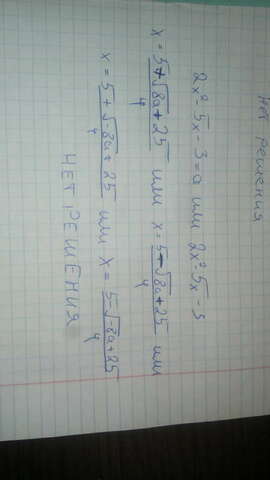 нет решения
2x² - 5x - 3 = a или 2x² - 5x - 3
x = 5+√8a+25 / 4 или x = 5-√8a+25 / 4 или
x = 5+√-8a+25 / 4 или x = 5-√-8a+25 / 4
НЕТ РЕШЕНИЯ